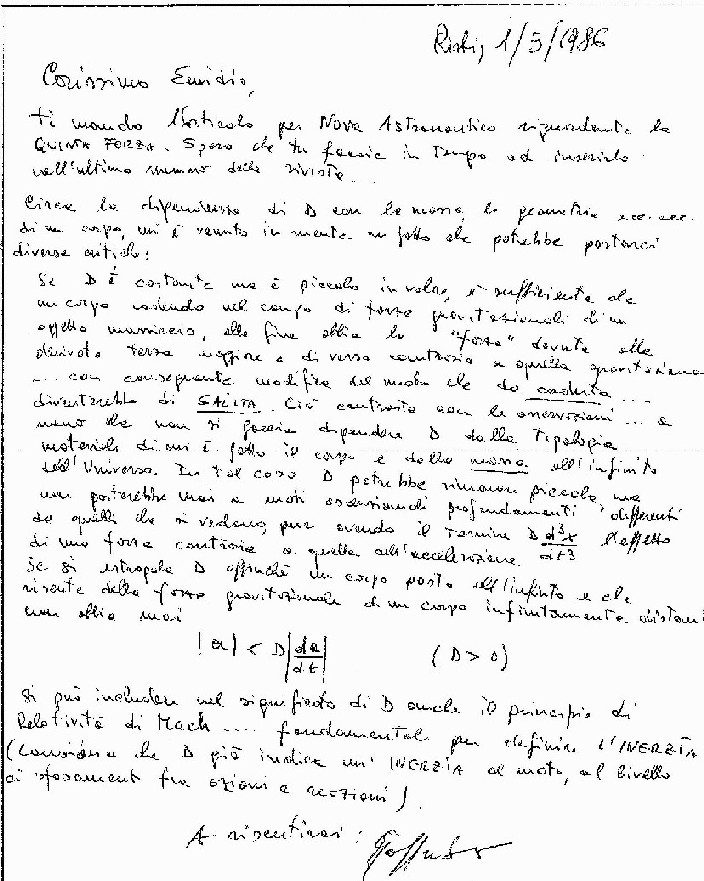 Rieti, 1/5/1986
Carissimo Emidio,
ti mando l'articolo per Nova Astronautica riguardante la
QUINTA FORZA. Spero che tu faccia in tempo ad inserirlo
nell'ultimo numero della rivista...
Circa la dipendenza di D con la massa, la geometria ecc. ecc.
di un corpo, mi è venuto in mente un fatto che potrebbe portarci
diverse critiche:
Se D è costante ma è piccolo in valore, è sufficiente che
un corpo cadendo nel campo di forze gravitazionali di un
oggetto massiccio, alla fine abbia la "forza" dovuta alla
derivata terza maggiore e di verso contrario a quella gravitazionale
.... con conseguente modifica del modo che da caduta....
diventerebbe di SALITA. Ciò contrasta con le osservazioni... a
meno che non si faccia dipendere D dalla tipologia
materiale di cui è fatto il corpo e dalla massa all'infinito
dell'Universo. In tal caso D potrebbe rimanere piccolo, ma
non porterebbe mai a moti ascensionali profondamenti differenti
da quelli che si vedono, pur avendo il termine D d³x/dt³ l'effetto
di una forza contraria a quella dell'accelerazione.
Se si estrapola D affinché un corpo posto all'infinito e che
risente della forza gravitazionale di un corpo infinitamente distante
non abbia mai
|a| < D|da/dt| (D > 0)
si può includere nel significato di D anche il principio di
Relatività di Mach .... fondamentale per definire l'INERZIA
(Considera che D già indica un'INERZIA al moto, al livello
di sfasamenti fra azioni e reazioni).
A risentirci: